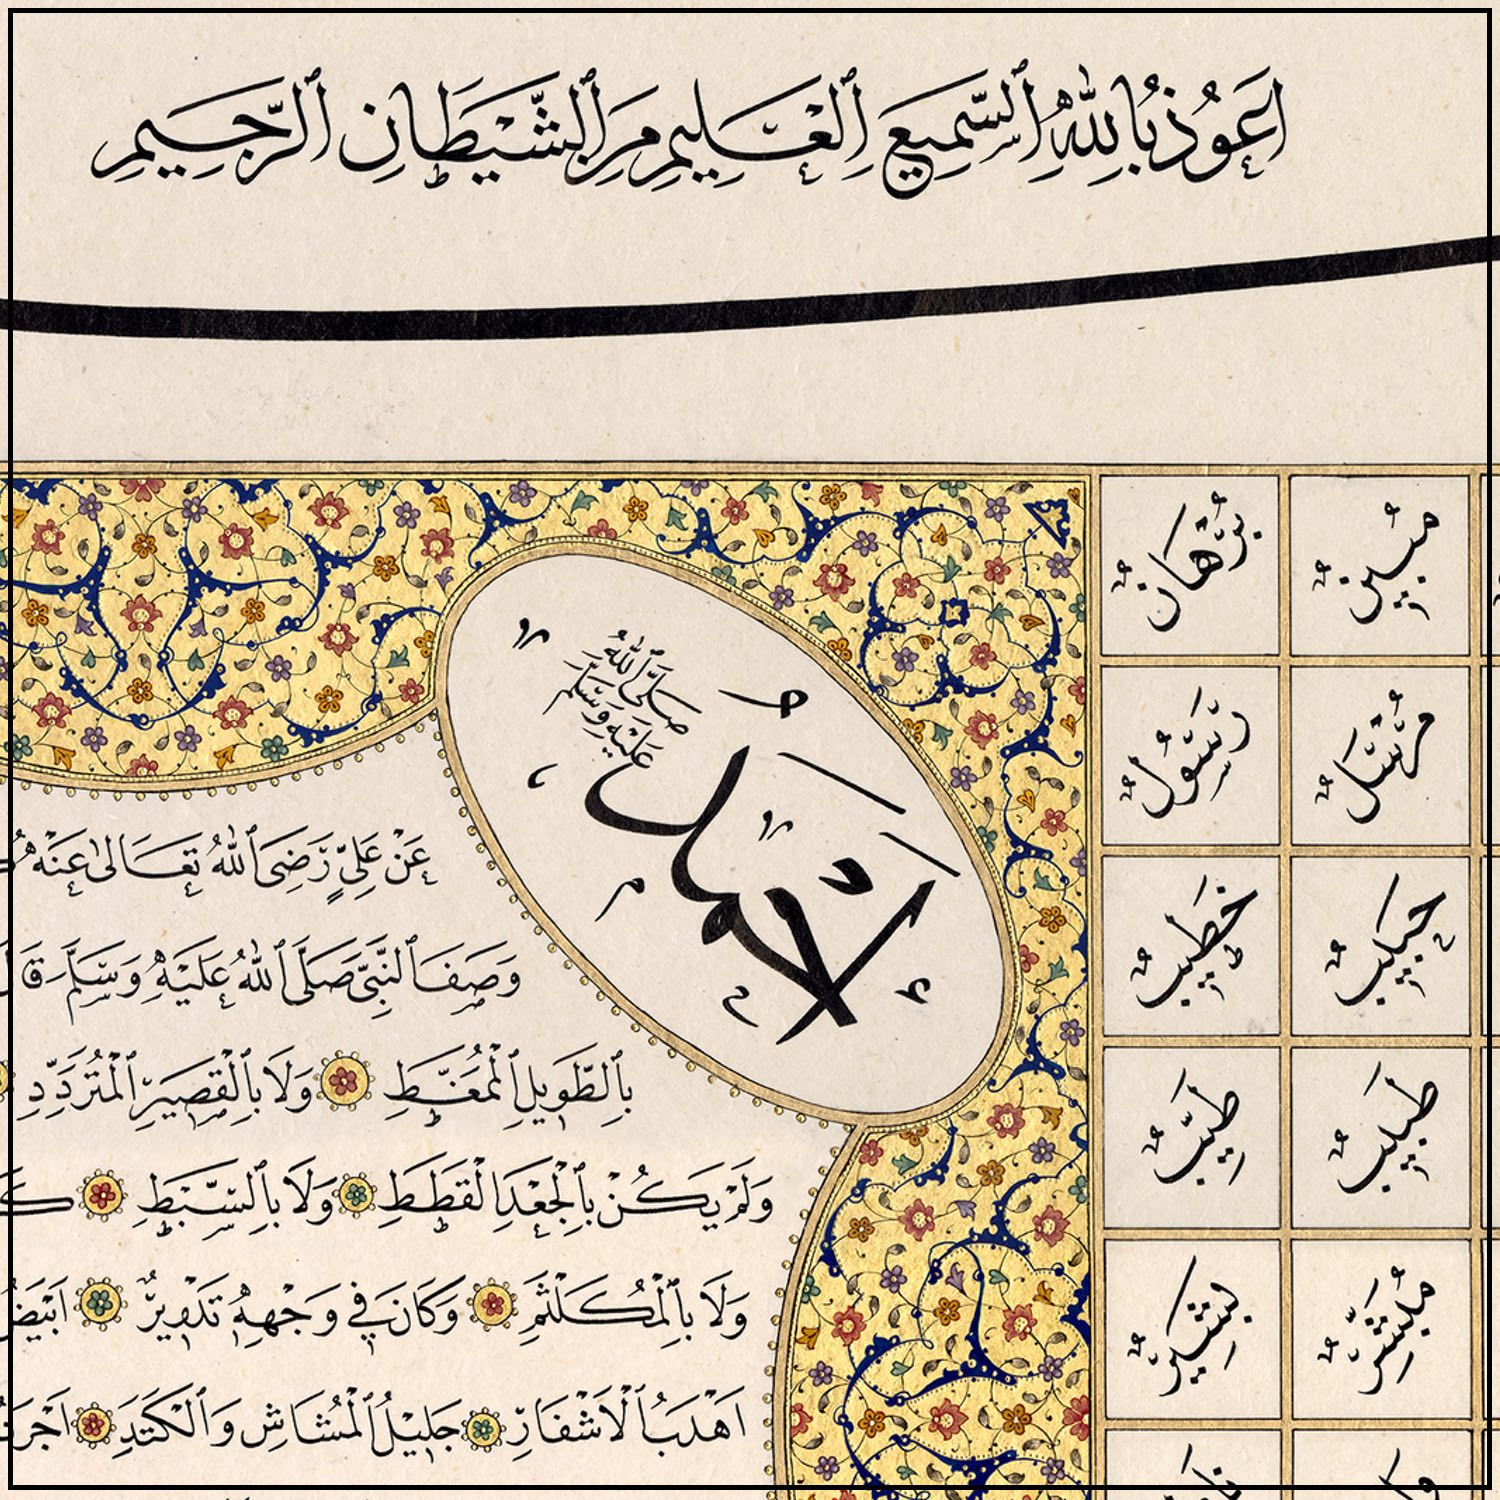 اَعُوذُ بِاللهِ السَّمِيعِ الْعَلِيمِ مِنَ الشَّيْطَانِ الرَّجِيمِ
صَلَّى اللهُ
عَلَيْهِ وَسَلَّمَ
عَنْ عَلِيٍّ رَضِيَ اللهُ تَعَالَى عَنْهُ
وَصَفَ النَّبِيَّ صَلَّى اللهُ عَلَيْهِ وَسَلَّمَ
بِالطَّوِيلِ الْمُمَغَّطِ وَلَا بِالْقَصِيرِ الْمُتَرَدِّدِ
وَلَمْ يَكُنْ بِالْجَعْدِ الْقَطَطِ وَلَا بِالسَّبْطِ
وَلَا بِالْمُكَلْثَمِ وَكَانَ فِي وَجْهِهِ تَدْوِيرٌ اَبْيَضُ
اَهْدَبُ الْاَشْفَارِ جَلِيلُ الْمُشَاشِ وَالْكَتَدِ
مُبِينٌ بُرْهَانٌ
مُرْسَلٌ رَسُولٌ
حَبِيبٌ خَطِيبٌ
طَبِيبٌ طَيِّبٌ
مُبَشِّرٌ بَشِيرٌ